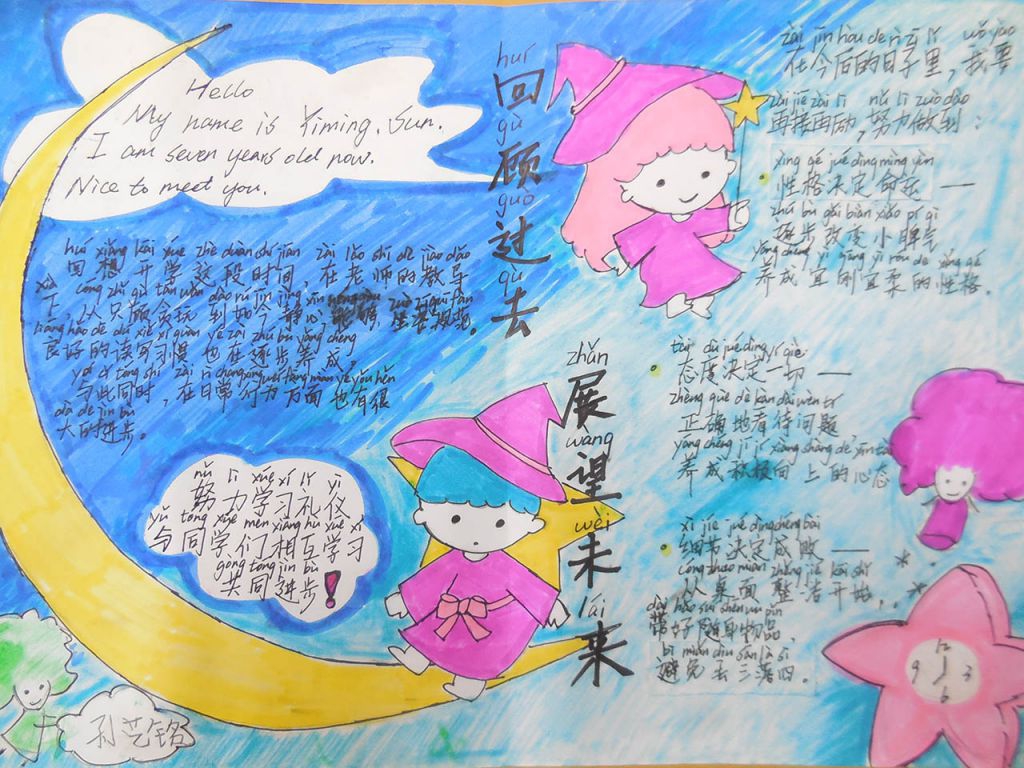 Hello
My name is Yiming. Sun.
I am seven years old now.
Nice to meet you.
huí xiǎng kāi xué zhè duàn shí jiān zài lǎo shī de jiào dǎo
回想开学这段时间,在老师的教导
下,从只顾贪玩到如今静心
liáng hǎo de dú xiě xí guàn yě zài zhú bù yǎng chéng
良好的读写习惯也在逐步养成。
yǔ cǐ tóng shí zài rì cháng xíng wéi fāng miàn yě yǒu hěn
与此同时,在日常行为方面也有很
dà de jìn bù
大的进步。
nǔ lì xué xí lǐ yí
努力学习礼仪
yǔ tóng xué men xiāng hù xué xí
与同学们相互学习
gong tong jìn bù
共同进步!
孙艺铭
huí
回
gù
顾
guò
过
qù
去
zhǎn
展
wàng
望
wèi
未
lái
来
zài jīn hòu de rì zǐ lǐ wǒ yào
在今后的日子里,我要
zài jiē zài lì nǔ lì zuò dào
再接再励,努力做到:
xìng gé jué dìng mìng yùn
性格决定命运——
zhú bù gǎi biàn xiǎo pí qì
逐步改变小脾气,
yǎng chéng yí gāng yí róu de xìng gé
养成宜刚宜柔的性格.
tài dù jué dìng yí qiè
态度决定一切——
zhèng què de kàn dài wèn tí
正确地看待问题
yǎng chéng jī jí xiàng shàng de xīn tài
养成积极向上的心态
xì jié jué dìng chéng bài
细节决定成败——
cóng zhuō miàn zhěng jié kāi shǐ
从桌面整洁开始,
dài hǎo suí shēn wù pǐn
带好随身物品,
bì miǎn diū sān là sì
避免丢三落四.
12
9 3
6